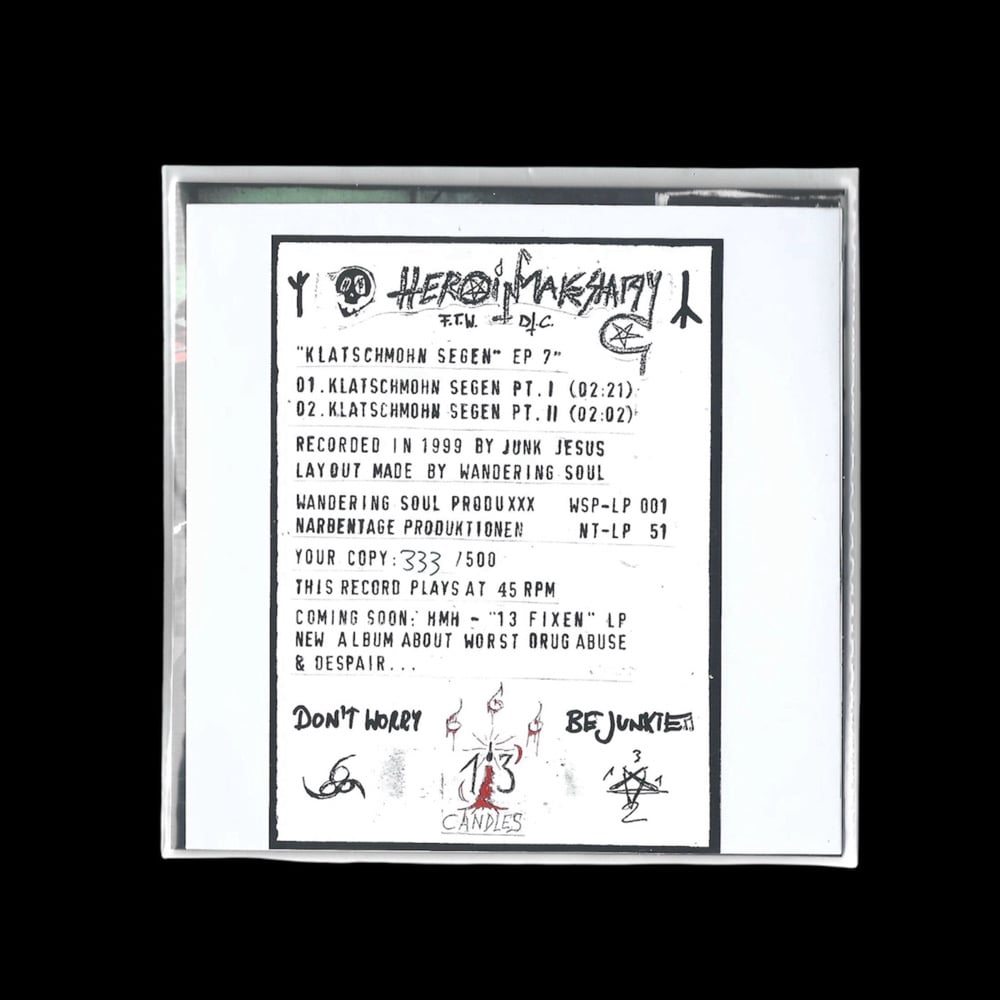 HEROIN MAKES HAPPY
F.T.W. D.I.C.
"KLATSCHMOHN SEGEN" EP 7"
01.KLATSCHMOHN SEGEN PT.I (02:21)
02.KLATSCHMOHN SEGEN PT.II (02:02)
RECORDED IN 1999 BY JUNK JESUS
LAYOUT MADE BY WANDERING SOUL
WANDERING SOUL PRODUXXX WSP-LP 001
NARBENTAGE PRODUKTIONEN NT-LP 51
YOUR COPY: 333 /500
THIS RECORD PLAYS AT 45 RPM
COMING SOON: HMH - "13 FIXEN" LP
NEW ALBUM ABOUT WORST DRUG ABUSE
& DESPAIR...
DON'T WORRY BE JUNKIE
13
CANDLES
666
1 3 1 2